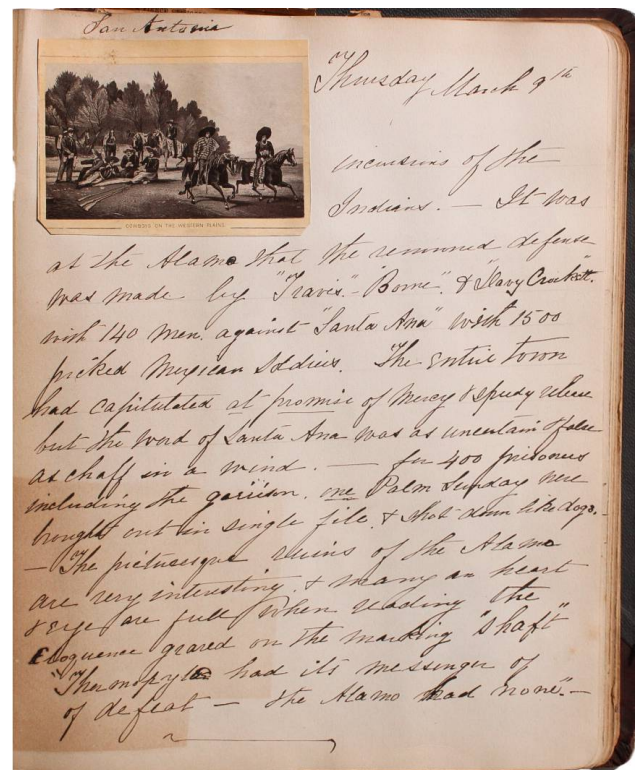 San Antonia
Thursday March 9th
COWBOYS ON THE WESTERN PLAINS.
incursions of the
Indians. — It was
at the Alamo that the renowned defense
was made by "Travis" - "Bowie". & "Davy Crockett".
with 140 men. against "Santa Ana" with 1500
picked Mexican Soldiers. The entire town
had capitulated at promise of Mercy & speedy release
but the word of Santa Ana was as uncertain & false
as chaff in a wind. — for 400 prisoners
including the garrison. one Palm Sunday were
brought out in single file. & shot down like dogs. -
— The picturesque ruins of the Alamo
are very interesting. & many an heart
& eye are full when reading the
Eloquence graved on the marking "shaft"
"Thermopylae had its messenger of
of defeat — the Alamo had none". —